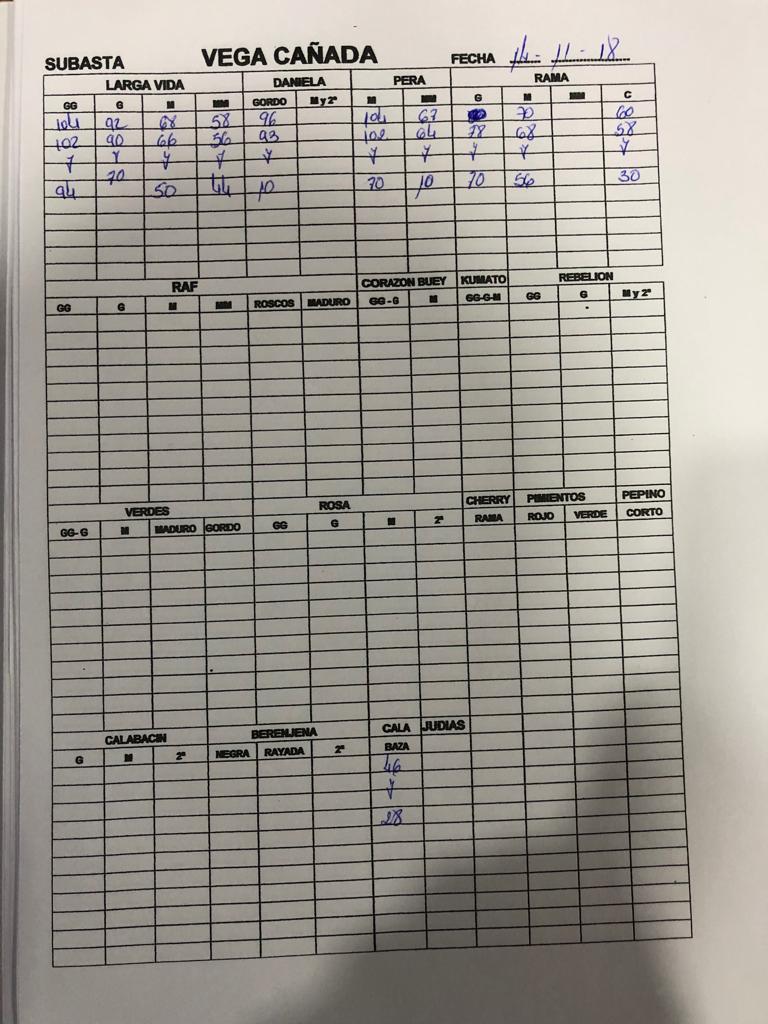 SUBASTA VEGA CAÑADA FECHA 14-11-18
LARGA VIDA DANIELA PERA RAMA
GG G M MM GORDO M y 2ª M MM G M MM C
104 92 68 58 96 104 67 70 60
102 90 66 56 93 102 64 78 68 58
y y y y y y y y y y
94 70 50 44 10 70 10 70 56 30
RAF CORAZON BUEY KUMATO REBELION
GG G M MM ROSCOS MADURO GG-G M GG-G-M GG G M y 2ª
VERDES ROSA CHERRY PIMIENTOS PEPINO
GG-G M MADURO GORDO GG G M 2ª RAMA ROJO VERDE CORTO
CALABACIN BERENJENA CALA JUDIAS
G M 2ª NEGRA RAYADA 2ª BAZA
46
y
28